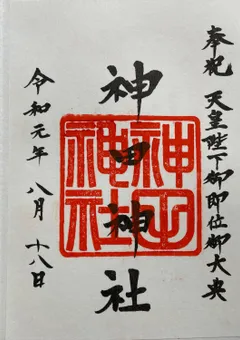 奉祝 天皇陛下御即位御大典
神田神社
神田神社
令和元年 八月 十八日